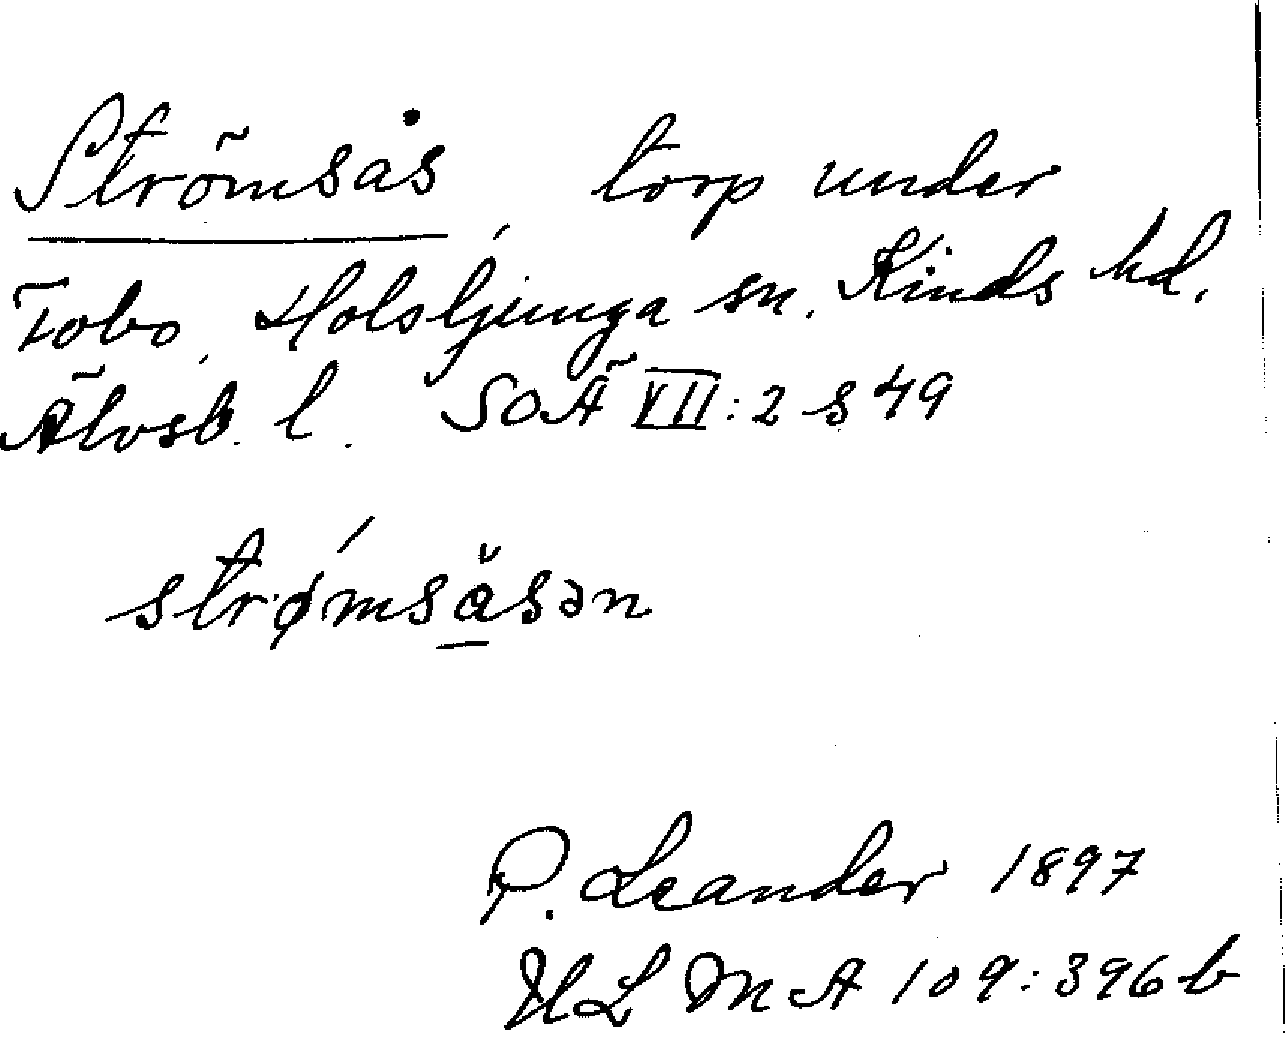 Strömsås, torp under
Tobo, Holsljunga sn. Kinds hd.
Älvsb. l. SOÄ VII:2 s 49
strǿmsåsən
P. Leander 1897
ULMA 109:396b